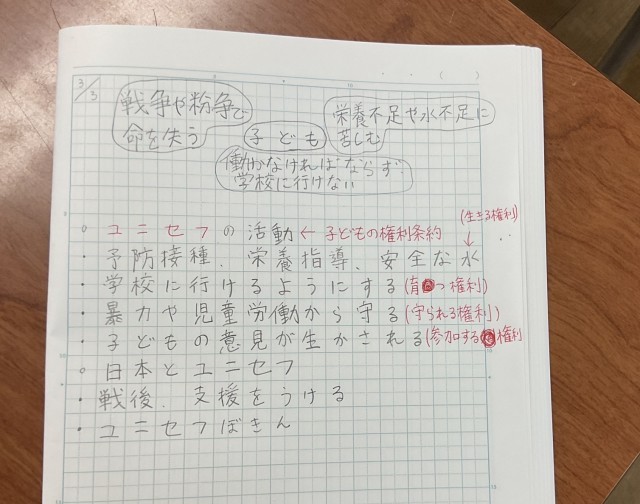 3/3
戦争や紛争で
命を失う
子ども
栄養不足や水不足に
苦しむ
働かなければならず
学校に行けない
(生きる権利)
○ ユニセフの活動 ← 子どもの権利条約 ↓
・ 予防接種、栄養指導、安全な水
・ 学校に行けるようにする(育つ権利)
・ 暴力や児童労働から守る(守られる権利)
・ 子どもの意見が生かされる(参加する権利
○ 日本とユニセフ
・ 戦後、支援をうける
・ ユニセフぼきん